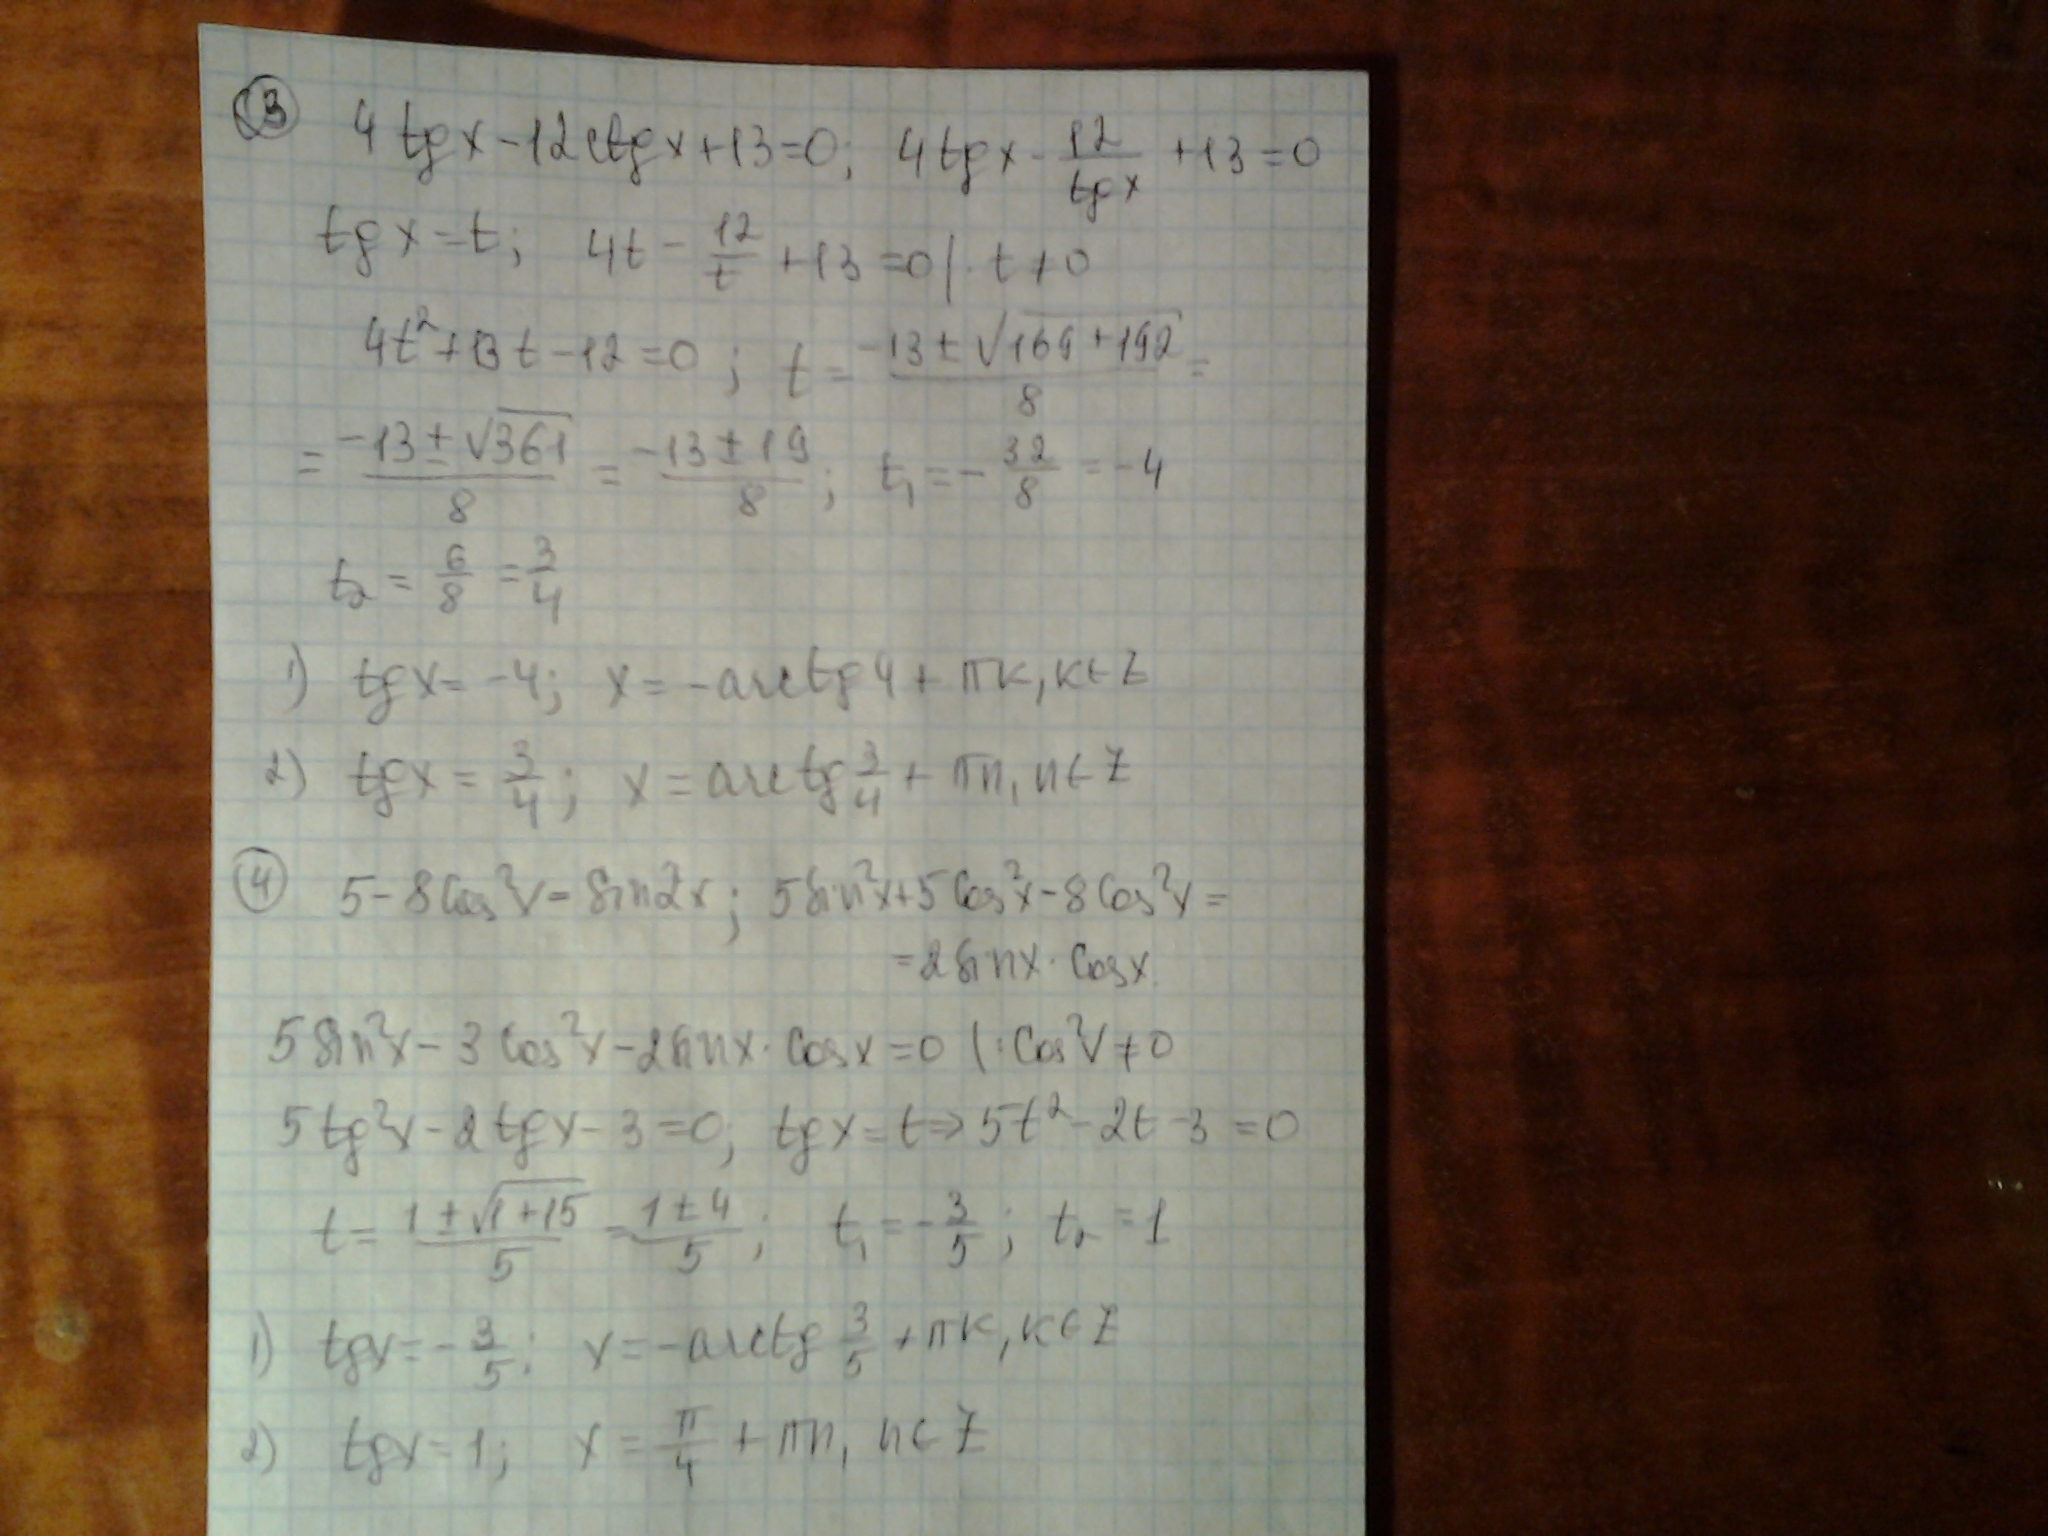 (3) 4 tg x - 12 ctg x + 13 = 0; 4 tg x - 12/tg x + 13 = 0
tg x = t; 4t - 12/t + 13 = 0 | · t ≠ 0
4t² + 13t - 12 = 0; t = (-13 ± √(169 + 192))/8 =
= (-13 ± √361)/8 = (-13 ± 19)/8; t₁ = -32/8 = -4
t₂ = 6/8 = 3/4
1) tg x = -4; x = -arctg 4 + πk, k ∈ Z
2) tg x = 3/4; x = arctg 3/4 + πn, n ∈ Z
(4) 5 - 8 cos²x = sin 2x; 5 sin²x + 5 cos²x - 8 cos²x =
= 2 sin x · cos x
5 sin²x - 3 cos²x - 2 sin x · cos x = 0 | : cos²x ≠ 0
5 tg²x - 2 tg x - 3 = 0; tg x = t ⇒ 5t² - 2t - 3 = 0
t = (1 ± √(1 + 15))/5 = (1 ± 4)/5; t₁ = -3/5; t₂ = 1
1) tg x = -3/5; x = -arctg 3/5 + πk, k ∈ Z
2) tg x = 1; x = π/4 + πn, n ∈ Z